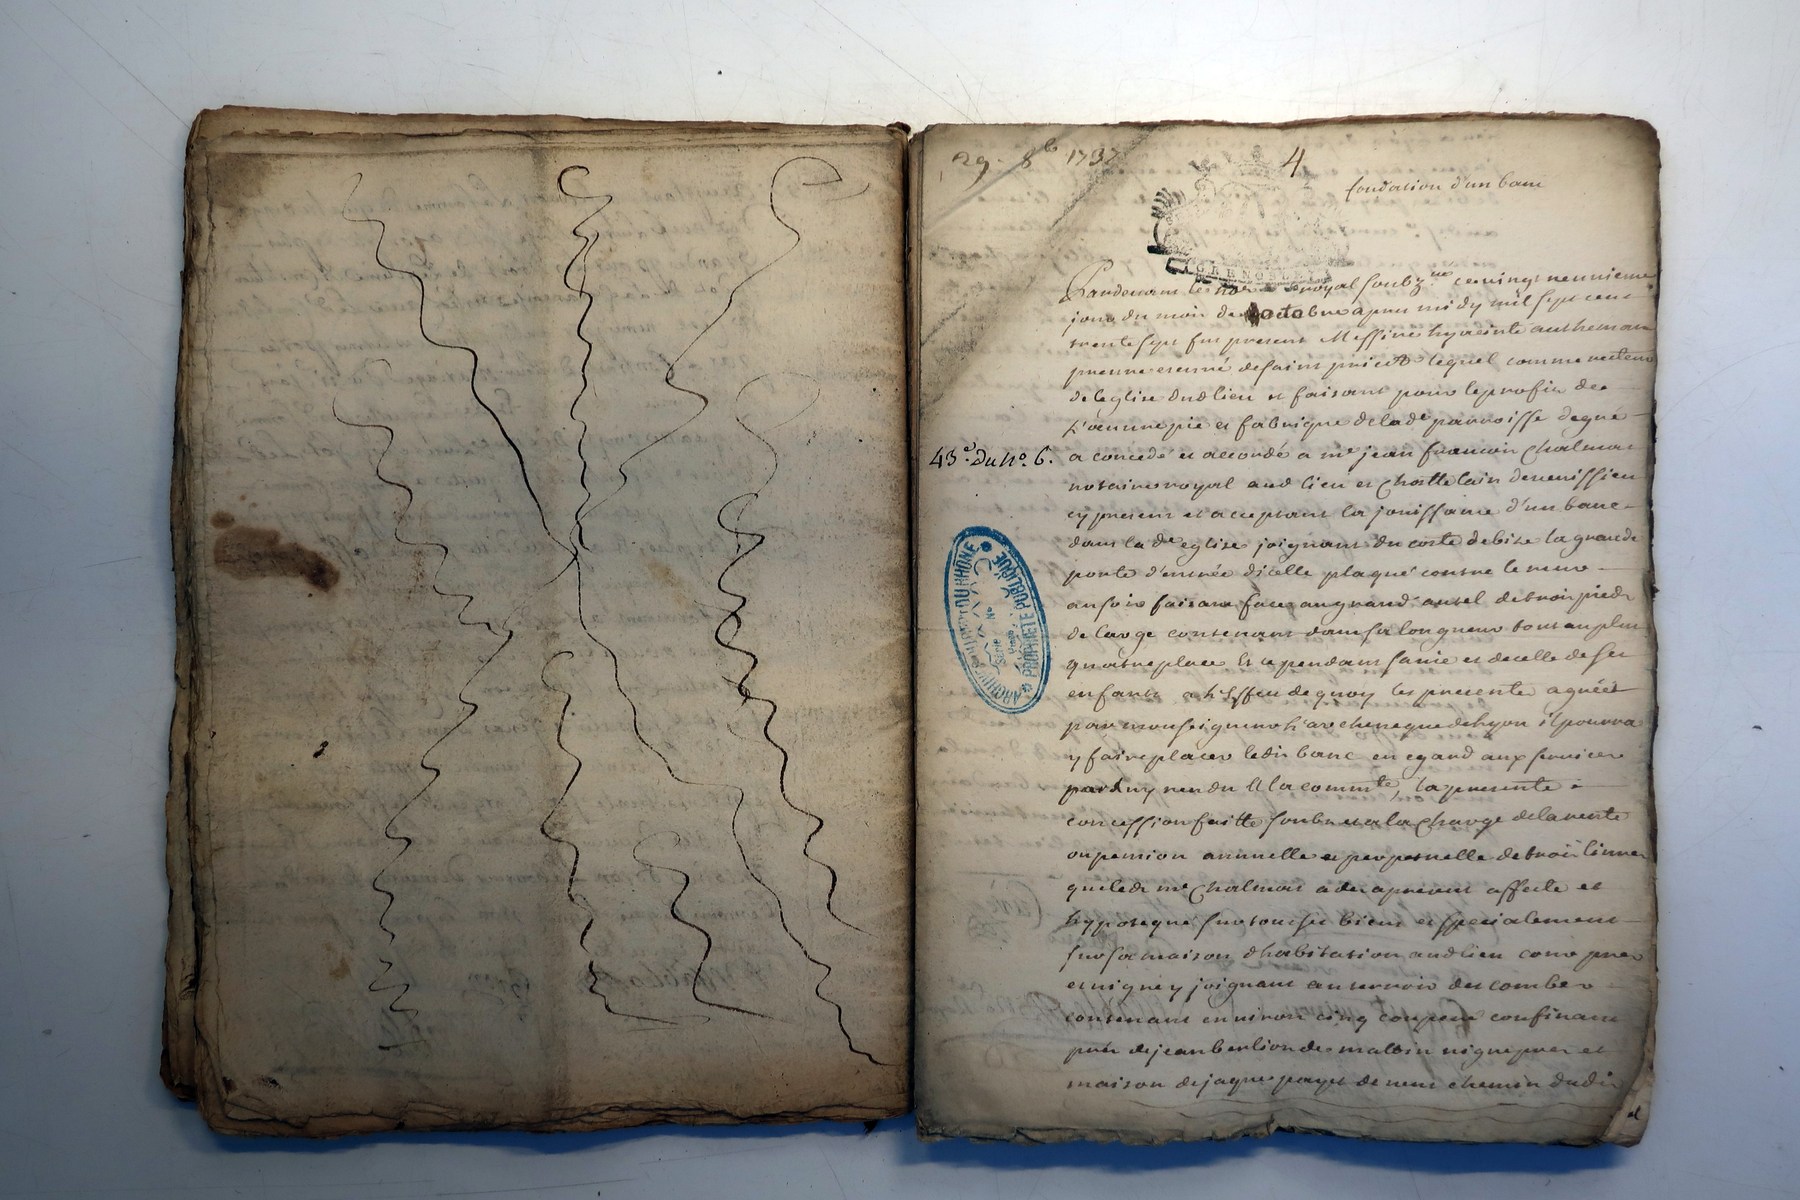 29. 8b 1737
4
fondation d'un banc
GRENOBLE
Pardevant le not royal soubzne ce vingt neuvieme
jour du mois de octobre apres midy mil sept cent
trente sept fut present Messire hyacinte
pretre et curé de saint priest lequel comme recteur
de leglise dud lieu et faisant pour le profit de
L'oeuvre pie et fabrique de lade parroisse de gré
43e. du No. 6.
a concedé et accordé a me jean francois Chalmas
notaire royal aud lieu et Chattelain de venissieu
cy present et acceptant la jouissance d'un banc
dans la de eglise joignant du costé de bize la grande
porte d'entrée dicelle plaqué contre le mur
au soir faisant face au grand autel de trois pieds
de large contenant dans sa longueur tout au plus
quatre place Et ce pendant sa vie et de celle de ses
enfants a L'Effeu de quoy les presente agréés
par monseigneur L'archeveque de Lyon il pourra
y faire placer ledit banc en egard aux services
par luy rendu a la comuté, la presente
concession faitte soubs et a la Charge de la rente
ou pension annuelle et perpetuelle de trois livres
que led me Chalmas a des apresent affecté et
hypotequé sur tous ses biens et specialement
sur sa maison d'habitation aud lieu cour pres
et vigne y joignant au terroir des combes
contenant environ cinq couperé confinant
pré de jean berlion de matin vigne pres et
maison de jaque payet de vent chemin dudit
ARCHIVES DU DEPT DU RHÔNE
PROPRIÉTÉ PUBLIQUE
Série No